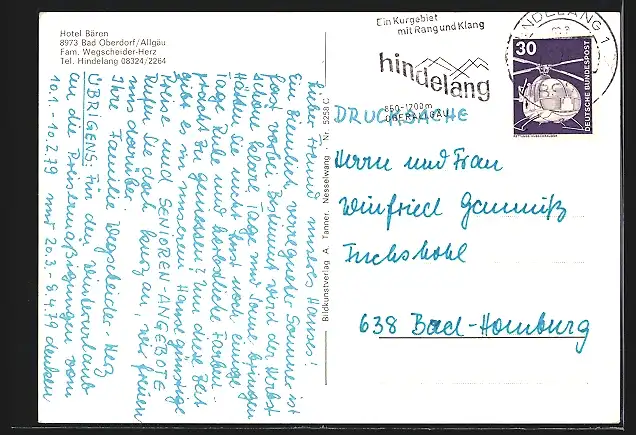 Hotel Bären
8973 Bad Oberdorf/Allgäu
Fam. Wegscheider-Herz
Tel. Hindelang 08324/2264
Ein Kurgebiet
mit Rang und Klang
hindelang
850-1700m
OBERALLGÄU
HINDELANG 1
30
DEUTSCHE BUNDESPOST
DRUCKSACHE
Herrn und Frau
Winfried
638 Bad-Homburg
Bildkunstverlag A. Tanner, Nesselwang · Nr. 5258 C
Lieber Freund unseres Hauses!
Ein ziemlich verregneter Sommer ist
fast vorbei. Bestimmt wird der Herbst
schöne klare Tage mit Sonne bringen
Hätten Sie nicht Lust noch einige
Tage Ruhe und herbstliche Farben-
pracht zu genießen? Um diese Zeit
gibt es in unserem Haus günstige
Aktiv- und SENIOREN-ANGEBOTE
Rufen Sie doch kurz an, wir freuen
uns darüber.
Ihre Familie Wegscheider-Herz
ÜBRIGENS: Für den Winterurlaub
an die Preisermäßigungen vom
10.1. - 10.2.79 und 20.3. - 8.4.79 denken